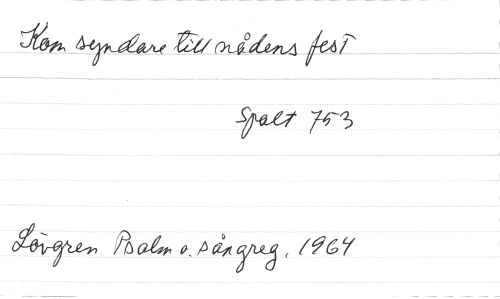 Kom syndare till nådens fest
Spalt 753
Lövgren Psalm o. sångreg. 1964